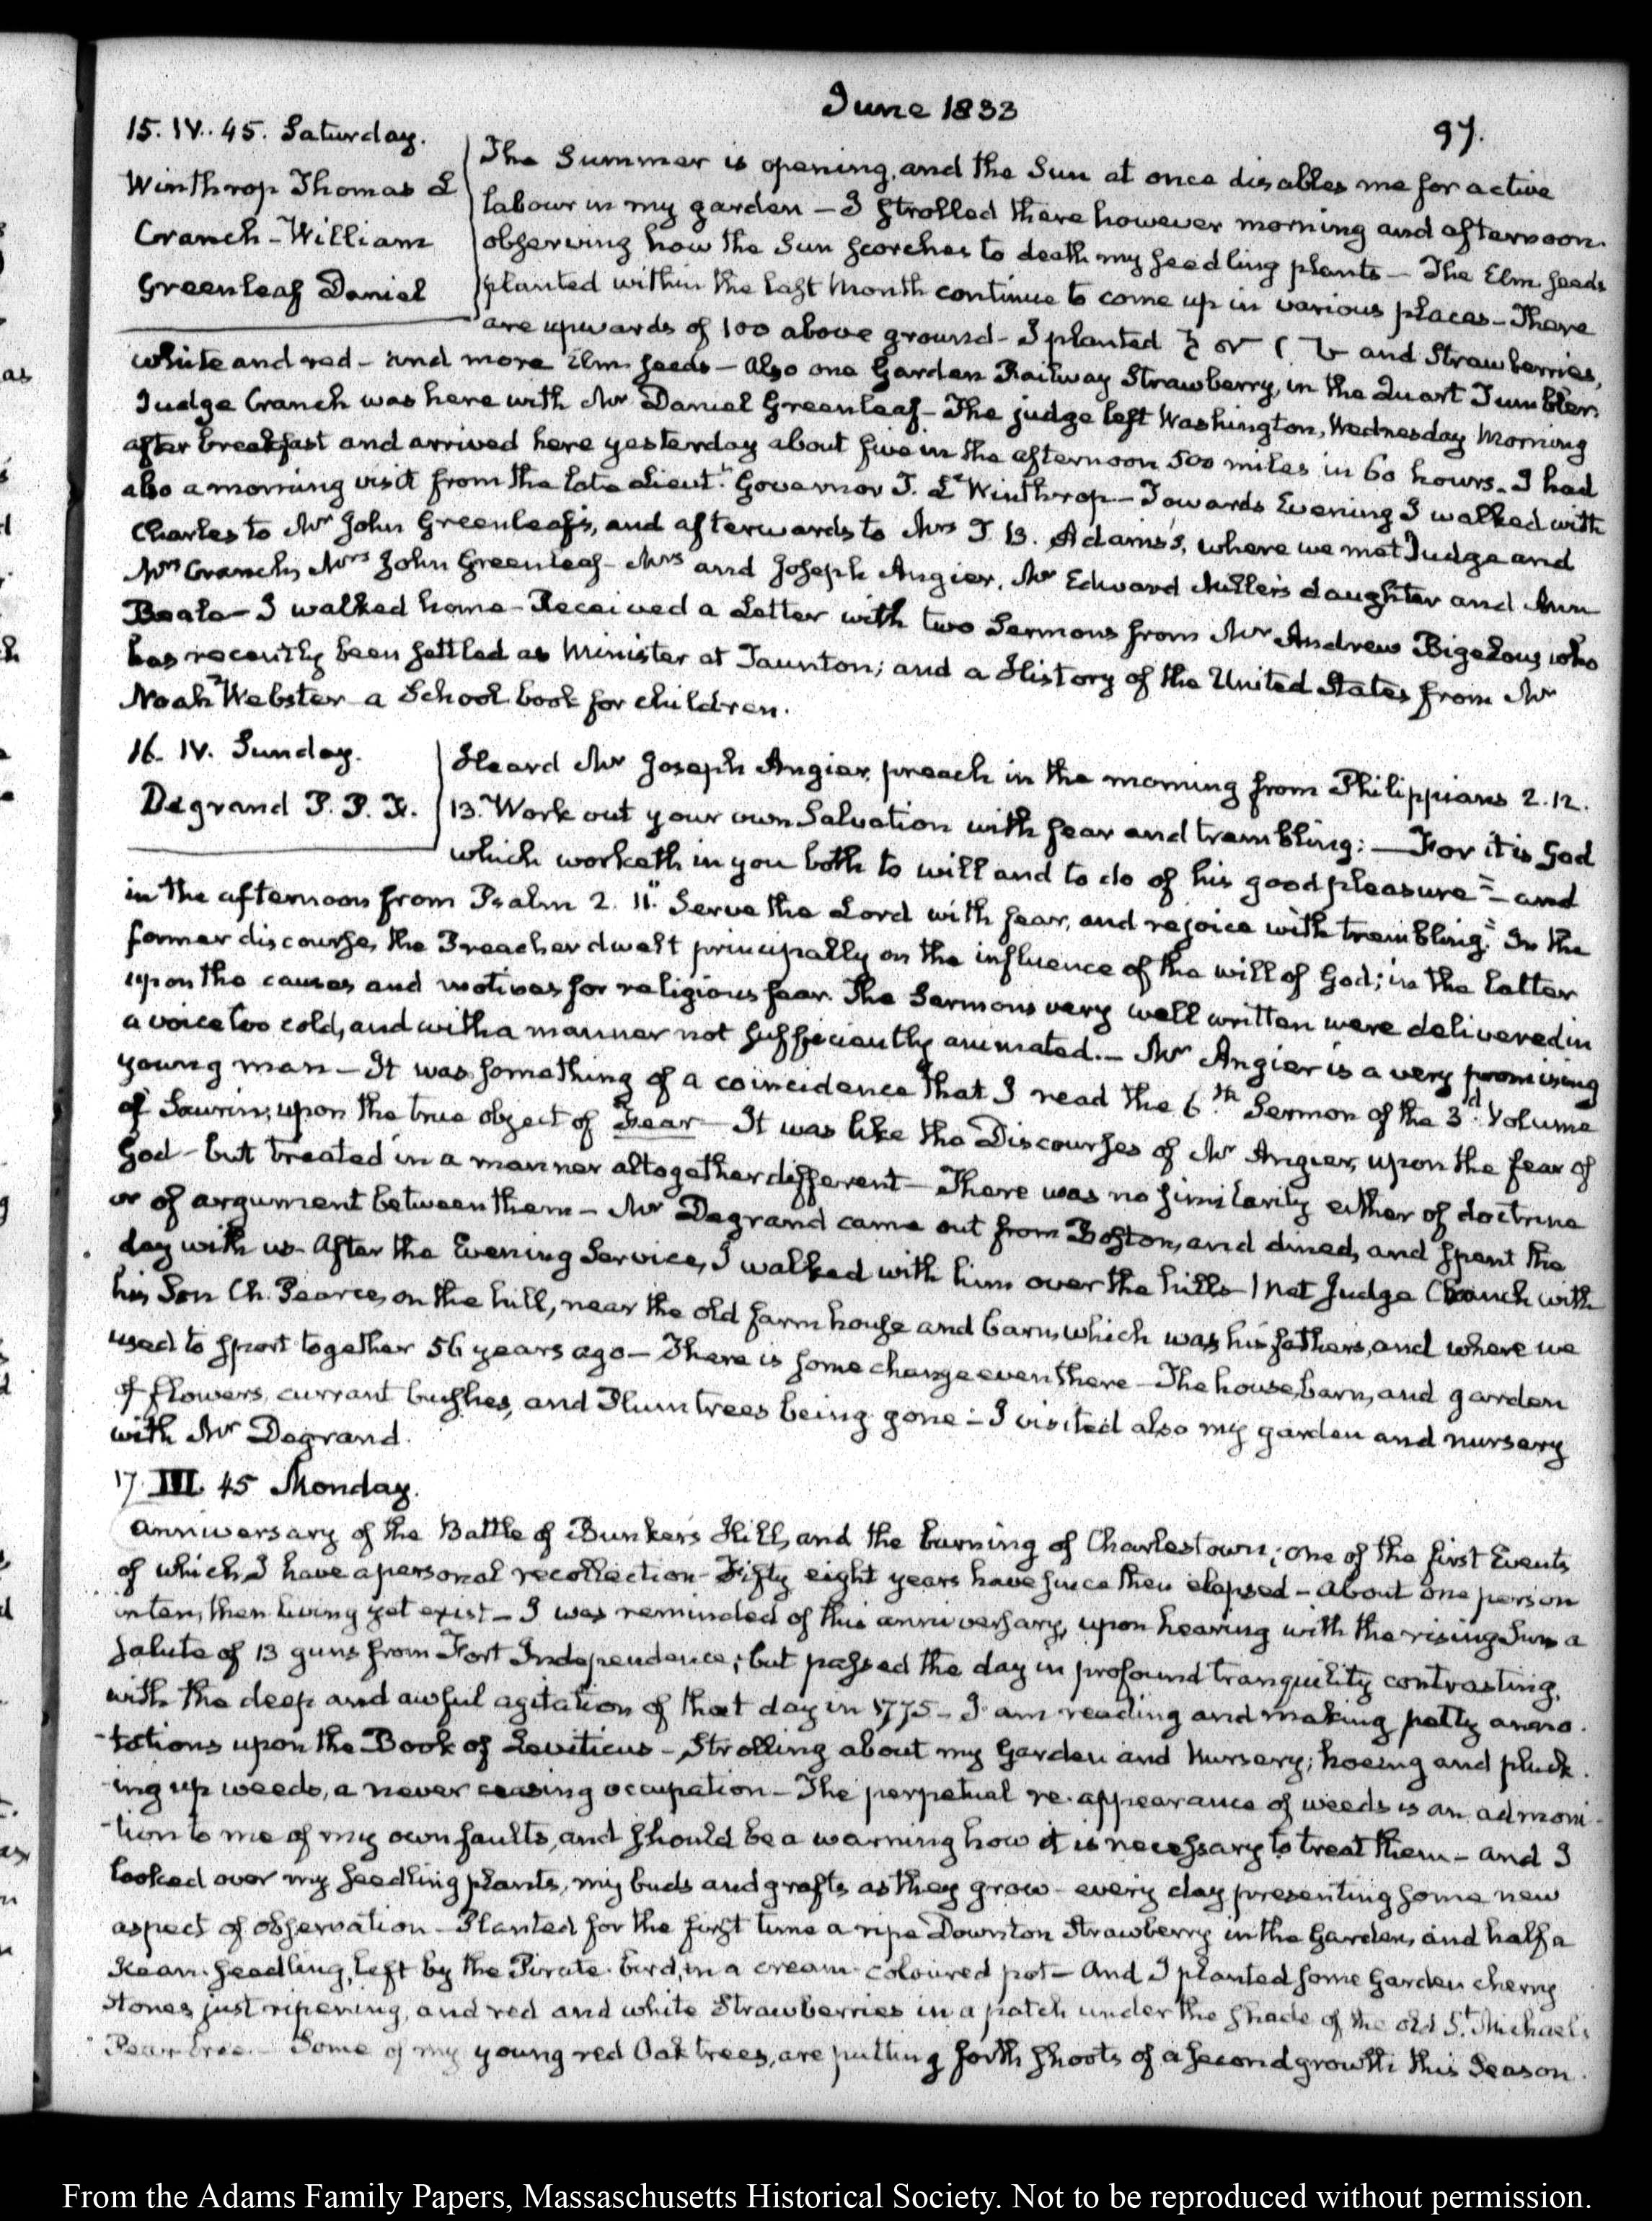 June 1833
97.
15. IV. 45. Saturday.
Winthrop Thomas L
Cranch - William
Greenleaf Daniel
The Summer is opening, and the Sun at once disables me for active
labour in my garden — I strolled there however morning and afternoon.
observing how the Sun scorches to death my seedling plants — The Elm seeds
planted within the last Month continue to come up in various places — There
are upwards of 100 above ground — I planted and Strawberries,
white and red — and more Elm seeds — also one Garden Railway Strawberry, in the Quart Tumbler.
Judge Cranch was here with Mr Daniel Greenleaf — The judge left Washington, Wednesday Morning
after breakfast and arrived here yesterday about five in the afternoon 500 miles in 60 hours. I had
also a morning visit from the late Lieutt Governor T. L. Winthrop — Towards Evening I walked with
Charles to Mr John Greenleaf's, and afterwards to Mrs T. B. Adams's, where we met Judge and
Mrs Cranch, Mrs John Greenleaf — Mrs and Joseph Angier, Mr Edward Miller's daughter and Ann
Beale — I walked home — Received a Letter with two Sermons from Mr Andrew Bigelow, who
has recently been settled as Minister at Taunton; and a History of the United States from Mr
Noah Webster a School book for children.
16. IV. Sunday.
Degrand P. P. F.
Heard Mr Joseph Angier, preach in the morning from Philippians 2. 12.
13. "Work out your own Salvation with fear and trembling: — For it is God
which worketh in you both to will and to do of his good pleasure" — and
in the afternoon from Psalm 2. 11. "Serve the Lord with fear, and rejoice with trembling." In the
former discourse, the Preacher dwelt principally on the influence of the will of God; in the latter
upon the causes and motives for religious fear. The Sermons very well written were delivered in
a voice too cold, and with a manner not sufficiently animated. — Mr Angier is a very promising
young man — It was something of a coincidence that I read the 6th Sermon of the 3d Volume
of Saurin, upon the true object of Fear — It was like the Discourses of Mr Angier, upon the fear of
God — but treated in a manner altogether different — There was no similarity either of doctrine
or of argument between them — Mr Degrand came out from Boston, and dined, and spent the
day with us. After the Evening Service, I walked with him over the hills — I met Judge Cranch with
his Son Ch. Pearce, on the hill, near the old farm house and barn, which was his father's, and where we
used to sport together 56 years ago — There is some change even there — The house, barn, and garden
of flowers, currant bushes, and Plum trees being gone — I visited also my garden and nursery
with Mr Degrand.
17. III. 45 Monday.
Anniversary of the Battle of Bunker's Hill, and the burning of Charlestown; one of the first Events
of which I have a personal recollection — Fifty eight years have since then elapsed — About one person
in ten, then living yet exist — I was reminded of this anniversary, upon hearing with the rising Sun a
salute of 13 guns from Fort Independence; but passed the day in profound tranquility contrasting,
with the deep and awful agitation of that day in 1775 — I am reading and making petty anno-
-tations upon the Book of Leviticus — Strolling about my Garden and Nursery; hoeing and pluck-
-ing up weeds, a never ceasing occupation — The perpetual re-appearance of weeds is an admoni-
-tion to me of my own faults, and should be a warning how it is necessary to treat them — and I
looked over my seedling plants, my buds and grafts as they grow — every day presenting some new
aspect of observation — Planted for the first time a ripe Downton Strawberry in the Garden, and half a
Kean seedling, left by the Pirate bird, in a cream-coloured pot — And I planted some Garden cherry
stones just ripening, and red and white Strawberries in a patch under the shade of the old St Michael's
Pear tree — Some of my young red Oak trees, are putting forth shoots of a second growth this Season.
From the Adams Family Papers, Massachusetts Historical Society. Not to be reproduced without permission.